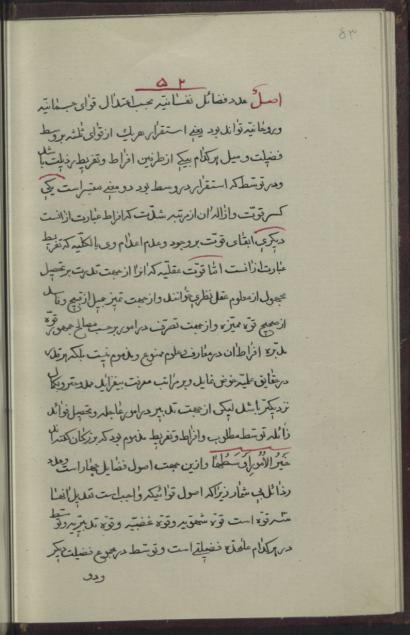 ۸۳
۵۲
اصل عدد فضائل نفسانیه بحسب اعتدال قوای جسمانیه
و روحانیه تواند بود یعنی استقرار هر یک از قوای ثلثه بر وسط
فضیلت و میل هر کدام بیکی از طرفین افراط و تفریط رذیلت باشد
و در توسط که استقرار در وسط بود دو معنی معتبر است یکی
کسر قوت و ازاله آن از مرتبه شدت که افراط عبارت از آنست
دیگری ابقای قوت بر وجود و عدم اعدام وی بالکلیه که تفریط
عبارت از آنست اما قوت عقلیه که او را از جهت قدرت بر تحصیل
مجهول از معلوم عقل نظری خوانند و از جهت تمیز جمیل از قبیح و فاسد
از صحیح قوه ممیزه و از جهت تصرف در امور بر حسب مصالح جمهور قوه
مدبره افراط آن در معارف و علوم ممنوع و مذموم نیست بلکه هر قدر
در حقایق علمیه خوض نماید و بر مراتب معرفت بیفزاید ممدوحتر و بکمال
نزدیکتر باشد لیکن از جهت تدبیر در امور عاجله و تحصیل فوائد
زائله توسط مطلوب و افراط و تفریط مذموم بود که بزرگان گفته‌اند
خیر الامور اوسطها و ازین جهت اصول فضایل چهار است و عدد
رذائل بی شمار زیرا که اصول قوائیکه واجبست تعدیل آنها
سه قوه است قوه شهویه و قوه غضبیه و قوه تدبیریه و توسط
در هر کدام علیحده فضیلتی است و توسط در مجموع فضیلت دیگر
و دو